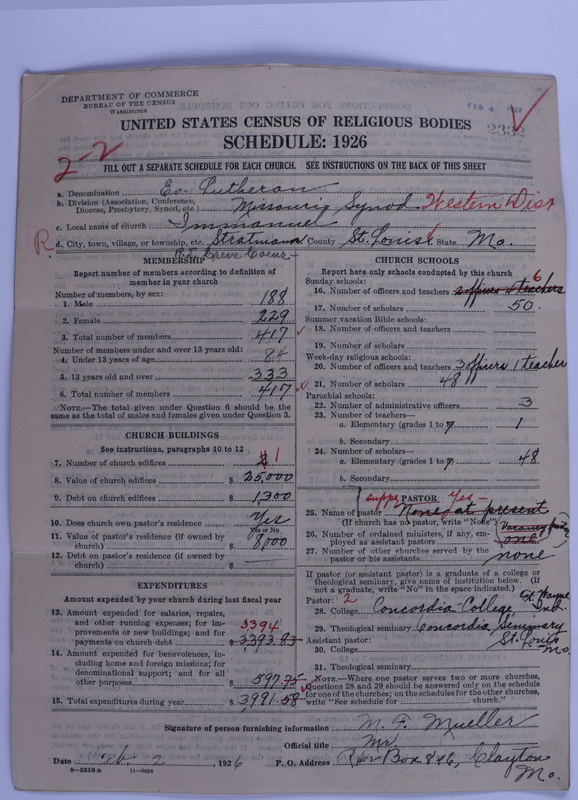 DEPARTMENT OF COMMERCE
BUREAU OF THE CENSUS
WASHINGTON
FEB 4
2332
UNITED STATES CENSUS OF RELIGIOUS BODIES
SCHEDULE: 1926
2-2
FILL OUT A SEPARATE SCHEDULE FOR EACH CHURCH. SEE INSTRUCTIONS ON THE BACK OF THIS SHEET
a. Denomination Ev. Lutheran
b. Division (Association, Conference, Diocese, Presbytery, Synod, etc.) Missouri Synod Western Dist
c. Local name of church Immanuel
R. d. City, town, village, or township, etc. Stratmann County St. Louis State Mo.
Creve Coeur
MEMBERSHIP
Report number of members according to definition of
member in your church
Number of members, by sex:
1. Male 188
2. Female 229
3. Total number of members 417
Number of members under and over 13 years old:
4. Under 13 years of age 84
5. 13 years old and over 333
6. Total number of members 417
NOTE.—The total given under Question 6 should be the
same as the total of males and females given under Question 3.
CHURCH BUILDINGS
See instructions, paragraphs 10 to 12
7. Number of church edifices 1
8. Value of church edifices $ 25,000
9. Debt on church edifices $ 1300
10. Does church own pastor's residence? Yes
Yes or No
11. Value of pastor's residence (if owned by
church) $ 8,000
12. Debt on pastor's residence (if owned by
church) $
EXPENDITURES
Amount expended by church during last fiscal year
13. Amount expended for salaries, repairs,
and other running expenses; for im-
provements or new buildings; and for
payments on church debt $ 3393.83
3394
14. Amount expended for benevolences, in-
cluding home and foreign missions; for
denominational support; and for all
other purposes $ 597.75
15. Total expenditures during year $ 3991.58
CHURCH SCHOOLS
Report here only schools conducted by this church
Sunday schools:
16. Number of officers and teachers 2 officers 4 teachers 6
17. Number of scholars 50.
Summer vacation Bible schools:
18. Number of officers and teachers
19. Number of scholars
Week-day religious schools:
20. Number of officers and teachers 3 officers 1 teacher
21. Number of scholars 48
Parochial schools:
22. Number of administrative officers 3
23. Number of teachers—
a. Elementary (grades 1 to 7) 1
b. Secondary
24. Number of scholars—
a. Elementary (grades 1 to 7) 48
b. Secondary
PASTOR
supply Yes-
25. Name of pastor None at present
(If church has no pastor, write "None")
26. Number of ordained ministers, if any, em-
ployed as assistant pastors one
27. Number of other churches served by the
pastor or his assistants none
If pastor (or assistant pastor) is a graduate of a college or
theological seminary, give name of institution below. (If
not a graduate, write "No" in the space indicated.)
Pastor: 2
28. College Concordia College, Ft. Wayne Ind.
29. Theological seminary Concordia Seminary
St. Louis Mo.
Assistant pastor:
30. College
31. Theological seminary
NOTE.—Where one pastor serves two or more churches,
Questions 28 and 29 should be answered only on the schedule
for one of the churches; on the schedules for the other churches,
write "See schedule for church."
Signature of person furnishing information M. F. Mueller
Official title
Date 2, 1926 P. O. Address Box 846, Clayton
Mo.
8—5518 A